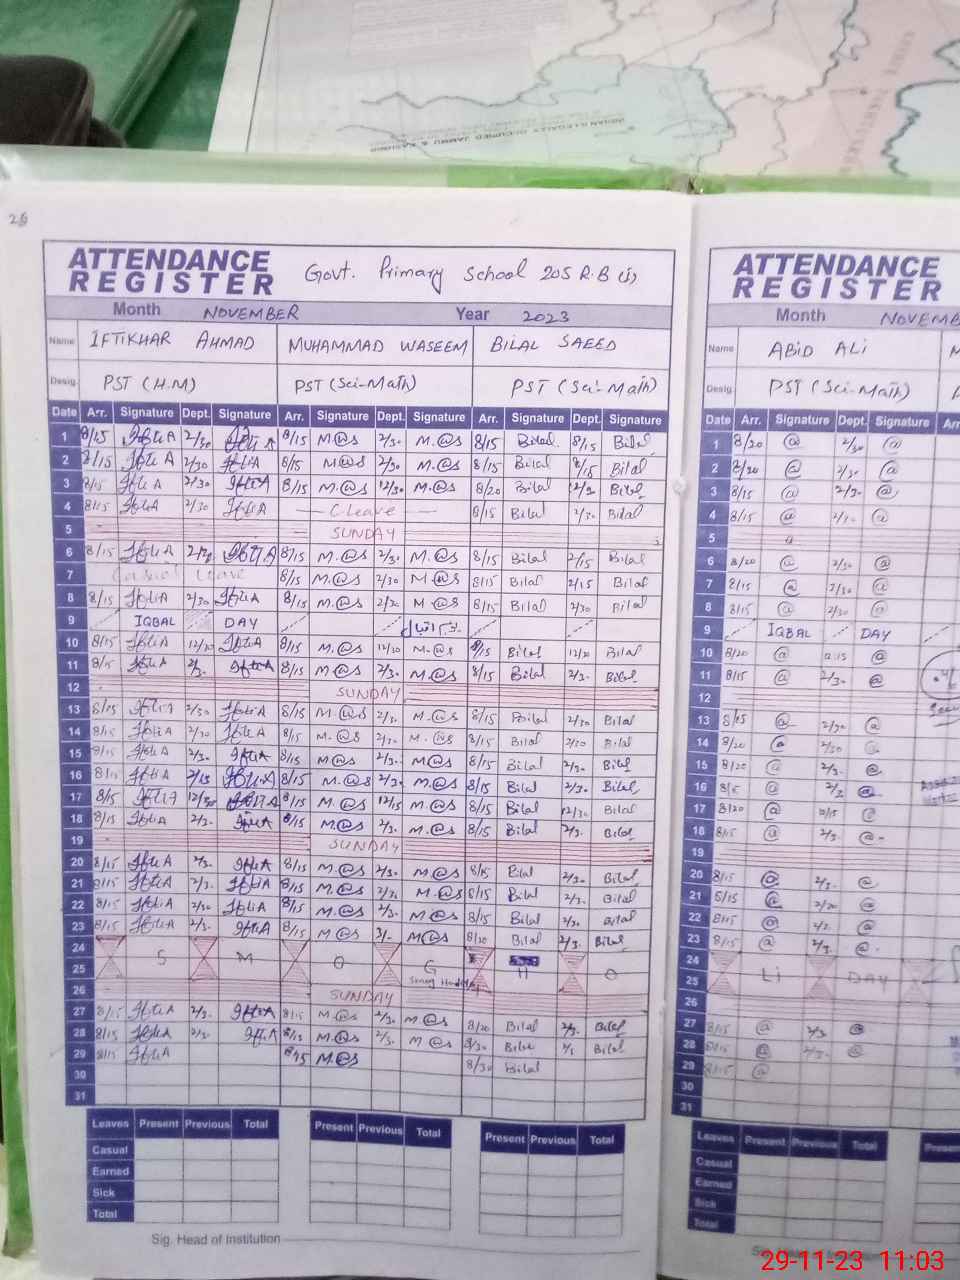 INDIAN ILLEGALLY OCCUPIED JAMMU & KASHMIR
ATTENDANCE REGISTER Govt. Primary School 205 R.B
Month NOVEMBER Year 2023
Name IFTIKHAR AHMAD MUHAMMAD WASEEM BILAL SAEED
Desig. PST (H.M) PST (Sci-Math) PST (Sci-Math)
Date Arr. Signature Dept. Signature Arr. Signature Dept. Signature Arr. Signature Dept. Signature
1 8/15 IftiA 2/30 IftiA 8/15 M@S 2/30 M.@S 8/15 Bilal 8/15 Bilal
2 8/15 IftiA 2/30 IftiA 8/15 M@S 2/30 M.@S 8/15 Bilal 8/15 Bilal
3 8/15 IftiA 2/30 IftiA 8/15 M.@S 12/30 M.@S 8/20 Bilal Bilal
4 8/15 IftiA 2/30 IftiA C.leave 8/15 Bilal 2/30 Bilal
5 SUNDAY
6 8/15 IftiA IftiA 8/15 M.@S 2/30 M.@S 8/15 Bilal 2/15 Bilal
7 Casual Leave 8/15 M.@S 2/30 M@S 8/15 Bilal 2/15 Bilal
8 8/15 IftiA 2/30 IftiA 8/15 M.@S 2/30 M@S 8/15 Bilal 2/30 Bilal
9 IQBAL DAY
10 8/15 IftiA 12/30 IftiA 8/15 M.@S 12/30 M.@S 8/15 Bilal 12/30 Bilal
11 8/15 IftiA 2/3. IftiA 8/15 M.@S 2/3. M.@S 8/15 Bilal 2/3. Bilal
12 SUNDAY
13 8/15 IftiA 2/30 IftiA 8/15 M@S 2/3. M.@S 8/15 Bilal 2/30 Bilal
14 8/15 IftiA 2/30 IftiA 8/15 M.@S 2/30 M.@S 8/15 Bilal 2/30 Bilal
15 8/15 IftiA 2/3. IftiA 8/15 M@S 2/3. M@S 8/15 Bilal 2/3. Bilal
16 8/15 IftiA 2/15 IftiA 8/15 M.@S 2/30 M@S 8/15 Bilal 2/3. Bilal
17 8/15 IftiA 12/30 IftiA 8/15 M.@S 12/15 M.@S 8/15 Bilal 12/30 Bilal
18 8/15 IftiA 2/3. IftiA 8/15 M.@S 2/3. M.@S 8/15 Bilal 2/3. Bilal
19 SUNDAY
20 8/15 IftiA 2/3. IftiA 8/15 M.@S 2/3. M@S 8/15 Bilal 2/30 Bilal
21 8/15 IftiA 2/3. IftiA 8/15 M.@S 2/30 M.@S 8/15 Bilal 2/3. Bilal
22 8/15 IftiA 2/30 IftiA 8/15 M.@S 2/3. M@S 8/15 Bilal 2/30 Bilal
23 8/15 IftiA 2/3. IftiA 8/15 M@S M@S 8/20 Bilal 2/3. Bilal
24
25 S M O G H O
26 SUNDAY
27 8/15 IftiA 2/3. IftiA 8/15 M.@S 2/30 M@S 8/20 Bilal 2/3. Bilal
28 8/15 IftiA 2/3. IftiA 8/15 M.@S 2/3. M@S 8/30 Bilal Bilal
29 8/15 IftiA 8/15 M.@S 8/30 Bilal
30
31
Leaves Present Previous Total Present Previous Total Present Previous Total
Casual
Earned
Sick
Total
Sig. Head of Institution
ATTENDANCE REGISTER
Month NOVEMB
Name ABID ALI
Desig. PST (Sci-Math)
Date Arr. Signature Dept. Signature Arr
1 8/20 @ 2/30 @
2 8/20 @ 2/30 @
3 8/15 @ 2/3. @
4 8/15 @ 2/3. @
5
6 8/20 @ 2/30 @
7 8/15 @ 2/30 @
8 8/15 @ 2/30 @
9 IQBAL DAY
10 8/20 @ @
11 8/15 @ 2/3. @
12
13 8/15 @ 2/30 @
14 8/20 @ 2/30 @
15 8/20 @ 2/3. @
16 8/15 @ @
17 8/20 @ @
18 8/15 @ 2/3. @
19
20 8/15 @ 2/3. @
21 8/15 @ 2/20 @
22 8/15 @ @
23 8/15 @ 2/3. @
24
25 LI DAY
26
27 8/15 @ 2/3. @
28 8/15 @ 2/3. @
29 8/15 @
30
31
Leaves Present Previous Total Prese
Casual
Earned
Sick
Total
29-11-23 11:03